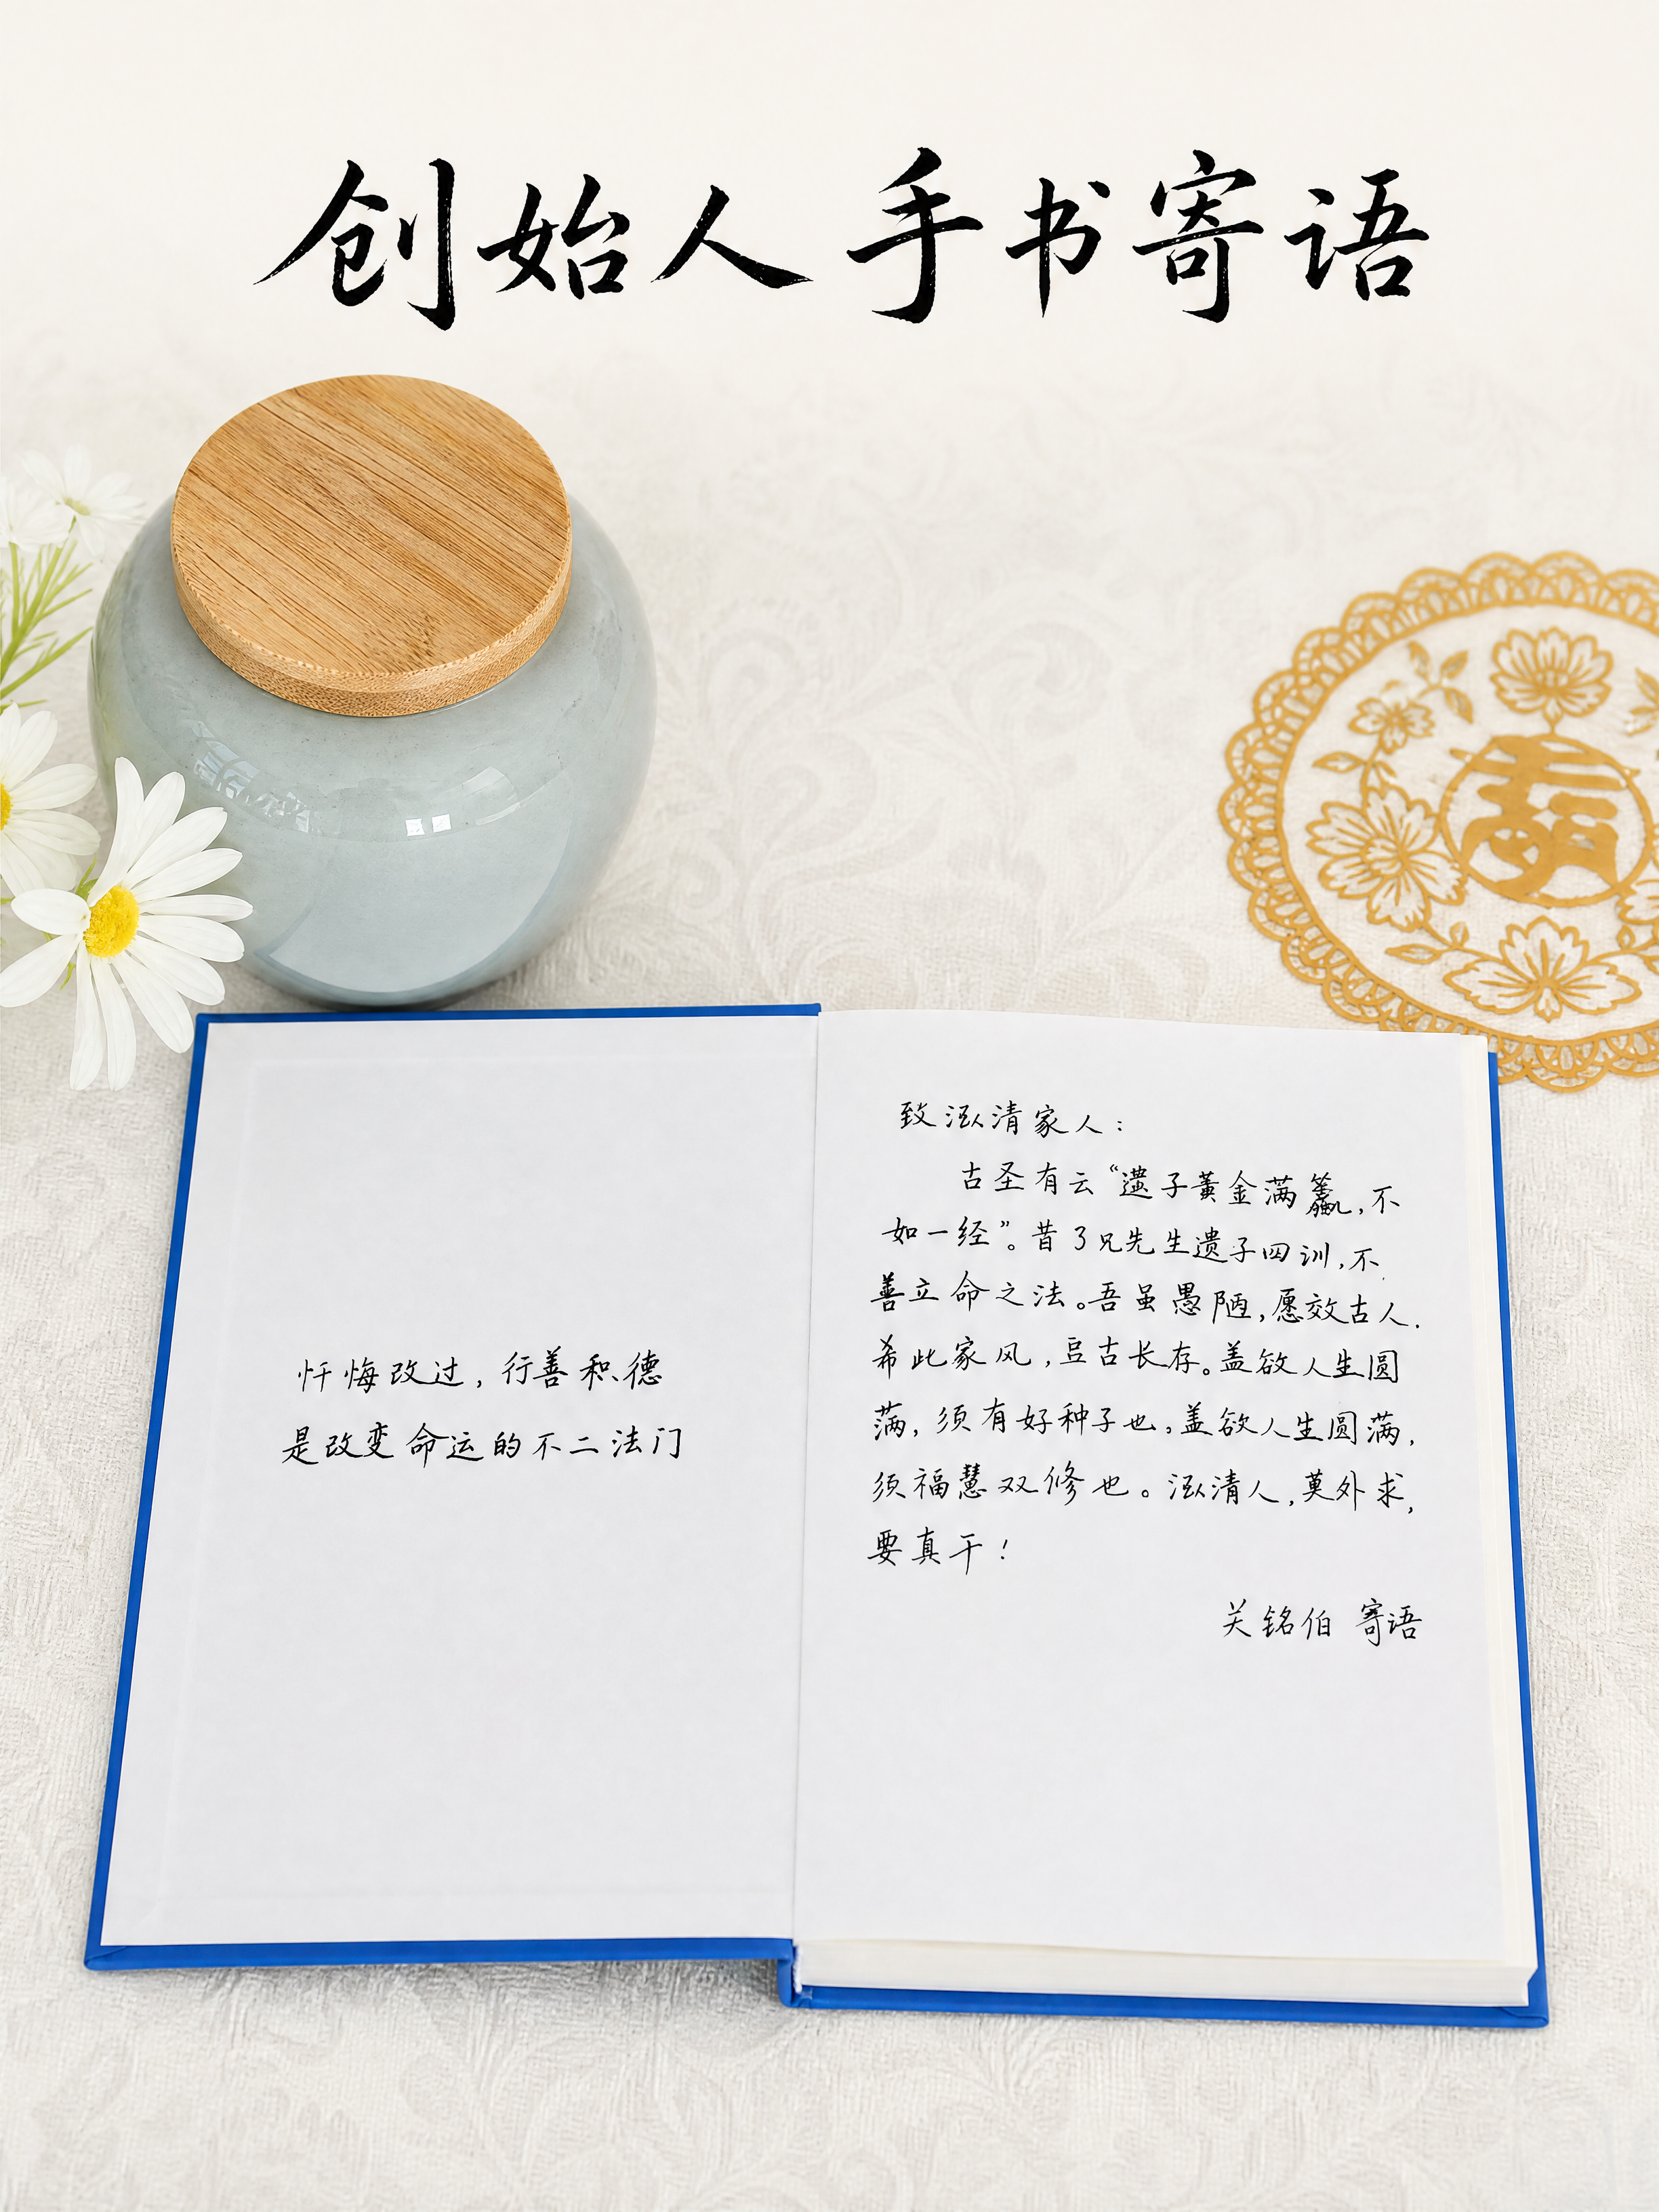 创始人 手书寄语
忏悔改过，行善积德
是改变命运的不二法门
致泓清家人：
古圣有云“遗子黄金满籝，不
如一经”。昔了凡先生遗子四训，不
善立命之法。吾虽愚陋，愿效古人.
希此家风，亘古长存。盖欲人生圆
满，须有好种子也，盖欲人生圆满，
须福慧双修也。泓清人，莫外求，
要真干！
关铭伯 寄语